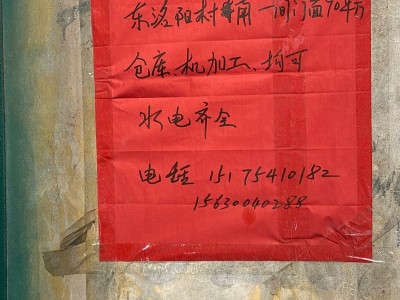 东洛阳村东角一间门面70平方
仓库、机加工、均可
水电齐全
电话 15175410182
15630040288